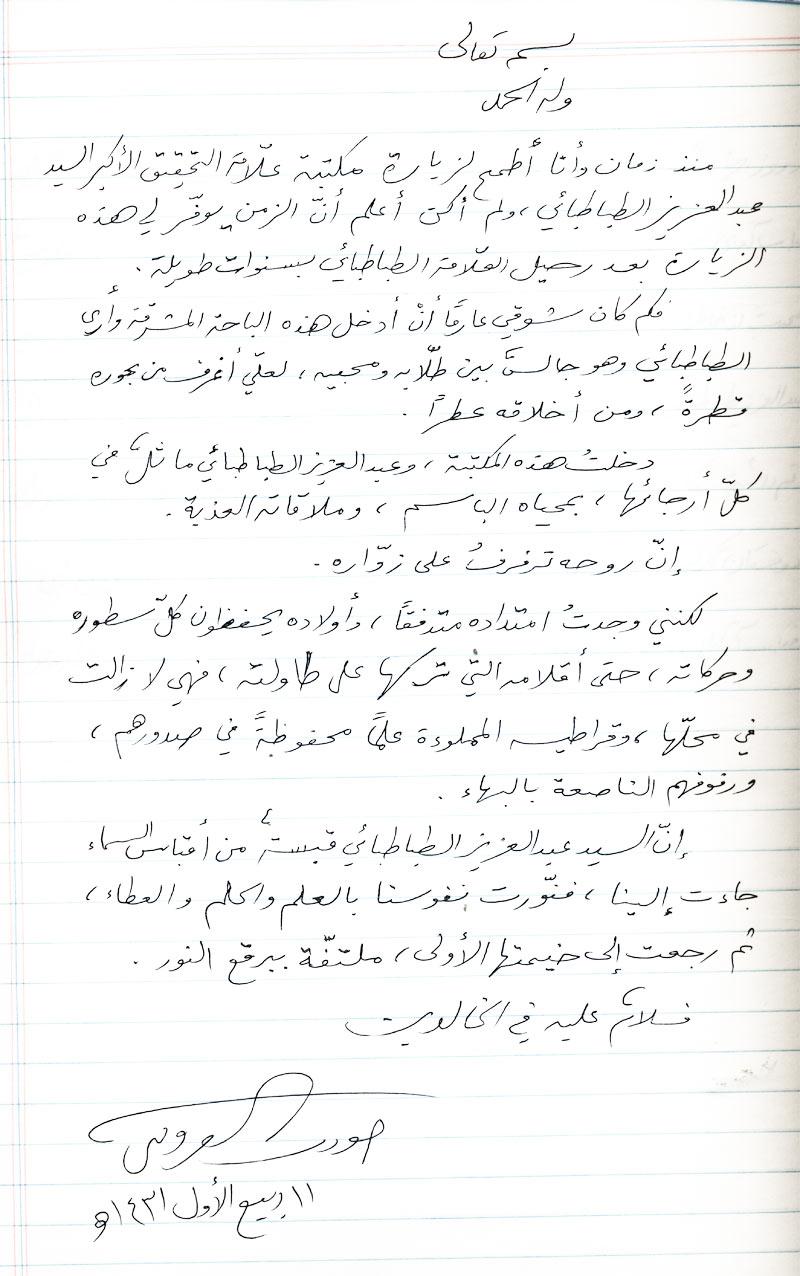 بسم تعالى
وله الحمد
منذ زمان وأنا أطمح لزيارة مكتبة علّامة التحقيق الأكبر السيد
عبدالعزيز الطباطبائي، ولم أكن أعلم أنّ الزمن يوفّر لي هذه
الزيارة بعد رحيل العلّامة الطباطبائي بسنوات طويلة.
فكم كان شوقي عارمًا أنْ أدخل هذه الباحة المشرقة وأرى
الطباطبائي وهو جالسٌ بين طلّابه ومحبيه، لعلّي أغرف من بحوره
قطرةً، ومن أخلاقه عطرًا.
دخلتُ هذه المكتبة، وعبدالعزيز الطباطبائي ماثلٌ في
كلّ أرجائها، بمحياه الباسم، وملاقاته العذبة.
إنّ روحه ترفرفُ على زوّاره.
لكنني وجدتُ امتداده متدفقًا، وأولاده يحفظون كلّ سطوره
وحركاته، حتى أقلامه التي تركها على طاولته، فهي لا زالت
في محلّها، وقراطيسه المملوءة علمًا محفوظةً في صدورهم،
ورفوفهم الناصعة بالبهاء.
إنّ السيد عبدالعزيز الطباطبائي قبسةٌ من أقباس السماء
جاءت إلينا، فنوّرت نفوسنا بالعلم والحلم والعطاء،
ثم رجعت إلى خيمتها الأولى، ملتفّة ببرقع النور.
فسلامٌ عليه في الخالدين
١١ ربيع الأول ١٤٣١هـ